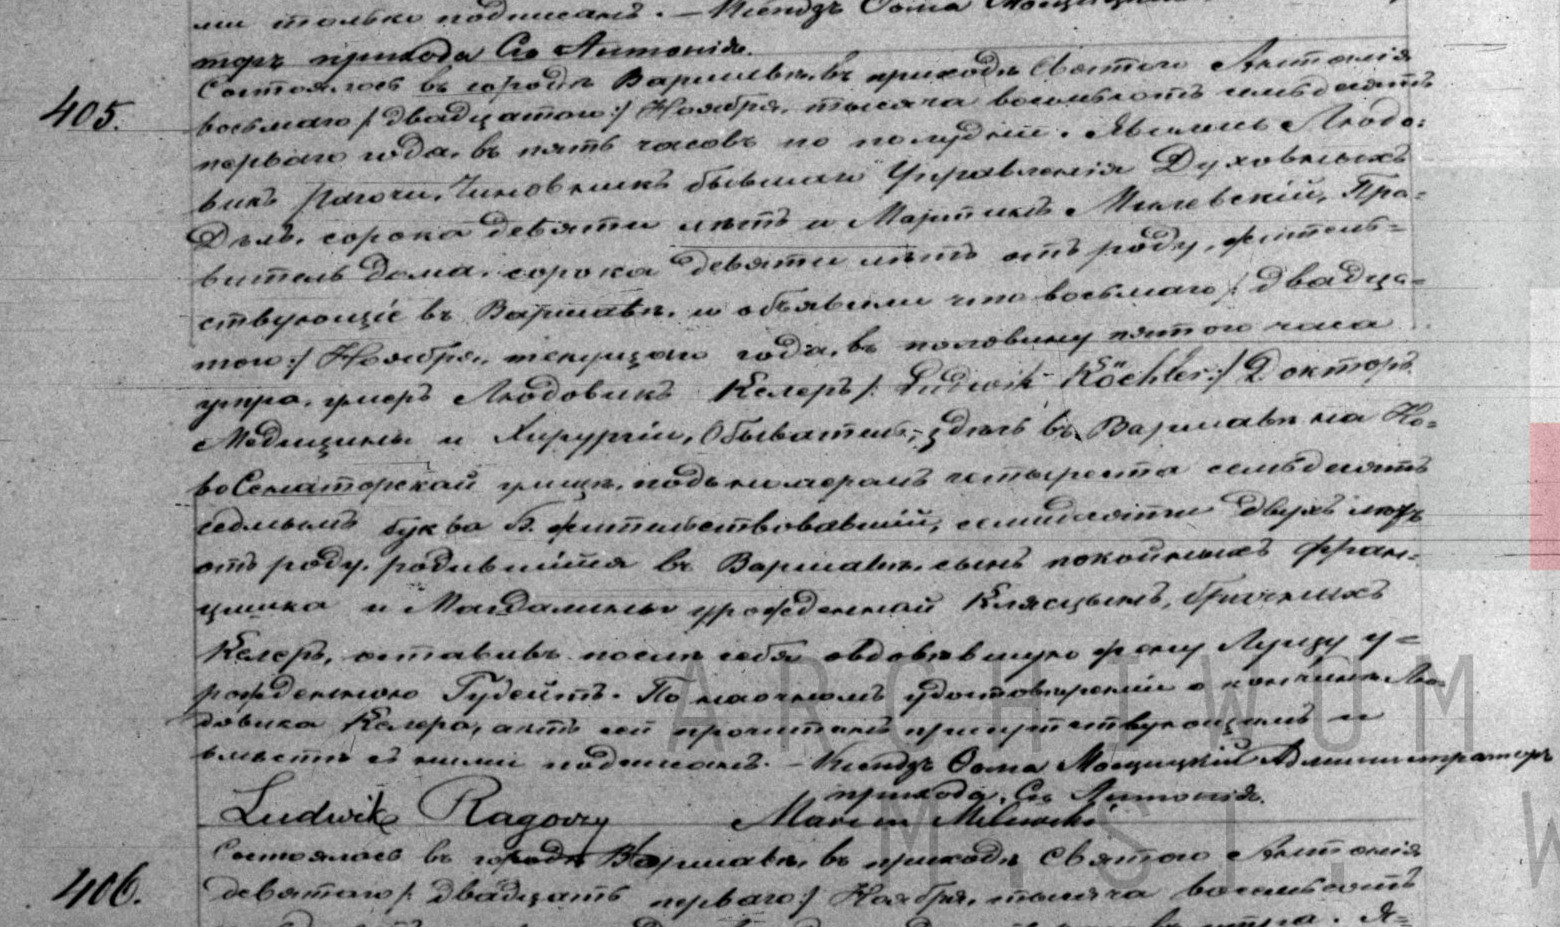 ми только подписанъ. — Ксендзъ Ѳома Мощицкій
торъ прихода Св Антонія.
405.
Состоялось въ городѣ Варшавѣ, въ приходѣ Святаго Антонія
восьмаго /: двадцатого :/ Ноября, тысяча восемьсотъ семьдесятъ
перваго года, въ пять часовъ по полудни. Явились Людо-
викъ Рагочи, Чиновникъ бывшаго Управленія Духовныхъ
Дѣлъ, сорока девяти лѣтъ и Мартинъ Милевскій, Пра-
витель Дома, сорока девяти лѣтъ отъ роду, житель-
ствующіе въ Варшавѣ, и объявили что восьмаго /: двадца-
того :/ Ноября, текущаго года, въ половину пятого часа
утра, умеръ Людовикъ Келеръ /: Ludwik Köchler :/ Докторъ
Медицины и Хирургіи, Обыватель, здѣсь въ Варшавѣ на Но-
во Сенаторской улицѣ, подъ номеромъ четыреста семьдесятъ
седьмымъ буква Б. жительствовавшій, семидесяти двухъ лѣтъ
отъ роду, родившійся въ Варшавѣ, сынъ покойныхъ Фран-
цишка и Магдалины урожденной брачныхъ
Келеръ, оставивъ послѣ себя овдовѣвшую жену Луизу у-
рожденную По наочномъ удостовѣреніи о кончинѣ Лю-
довика Келера, актъ сей прочитанъ присутствующимъ и
вмѣстѣ съ ними подписанъ. — Ксендзъ Ѳома Мощицкій Администраторъ
прихода, Св Антонія.
Ludwik Ragoczy Marcin Milewski
406.
Состоялось въ городѣ Варшавѣ, въ приходѣ Святаго Антонія
девятаго /: двадцать перваго :/ Ноября, тысяча восемьсотъ
утра. Я-
ARCHIWUM
M.ST. W